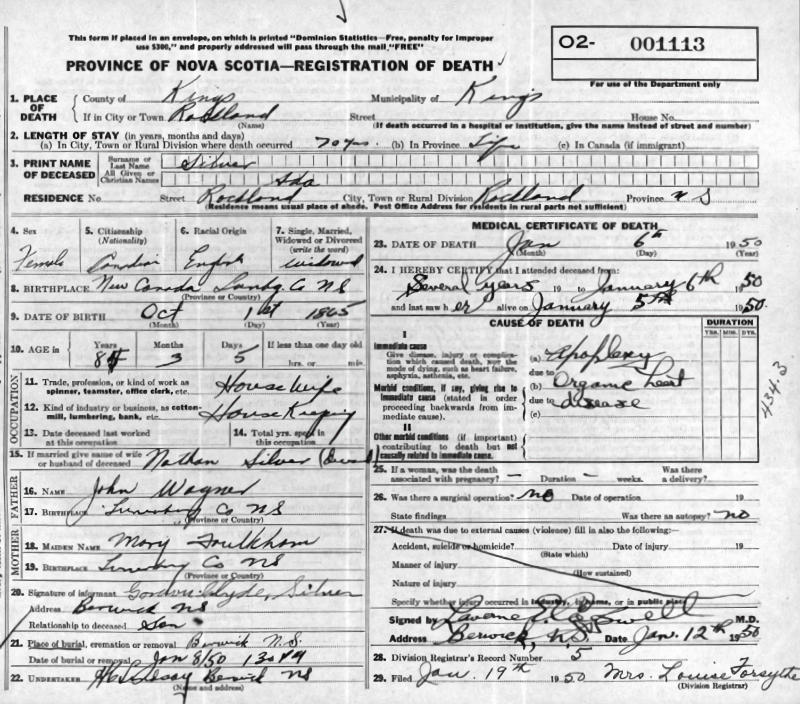 This form if placed in an envelope, on which is printed "Dominion Statistics—Free, penalty for improper
use $300," and properly addressed will pass through the mail "FREE"
PROVINCE OF NOVA SCOTIA—REGISTRATION OF DEATH
O2- 001113
For use of the Department only
1. PLACE OF DEATH County of Kings Municipality of Kings
If in City or Town Rockland Street House No.
(Name) (If death occurred in a hospital or institution, give the name instead of street and number)
2. LENGTH OF STAY (in years, months and days)
(a) In City, Town or Rural Division where death occurred 70 yrs. (b) In Province Life (c) In Canada (if immigrant)
3. PRINT NAME OF DECEASED Surname or Last Name Silver
All Given or Christian Names Ada
RESIDENCE No. Street Rockland City, Town or Rural Division Rockland Province N S
(Residence means usual place of abode. Post Office Address for residents in rural parts not sufficient)
4. Sex 5. Citizenship (Nationality) 6. Racial Origin 7. Single, Married, Widowed or Divorced (write the word)
Female Canadian English widowed
8. BIRTHPLACE New Canada Lundg. Co NS
(Province or Country)
9. DATE OF BIRTH Oct 1st 1865
(Month) (Day) (Year)
10. AGE in Years Months Days If less than one day old
84 3 5 hrs. or min.
OCCUPATION
11. Trade, profession, or kind of work as spinner, teamster, office clerk, etc. House Wife
12. Kind of industry or business, as cotton-mill, lumbering, bank, etc. House Keeping
13. Date deceased last worked at this occupation 14. Total yrs. spent in this occupation
15. If married give name of wife or husband of deceased Nathan Silver
FATHER
16. NAME John Wagner
17. BIRTHPLACE Lunenburg Co NS
(Province or Country)
MOTHER
18. MAIDEN NAME Mary
19. BIRTHPLACE Lunenburg Co NS
(Province or Country)
20. Signature of informant Gordon Clyde Silver
Address Berwick NS
Relationship to deceased Son
21. Place of burial, cremation or removal Berwick N.S.
Date of burial or removal Jan 8/50
22. UNDERTAKER Berwick NS
(Name and address)
MEDICAL CERTIFICATE OF DEATH
23. DATE OF DEATH Jan 6th 1950
(Month) (Day) (Year)
24. I HEREBY CERTIFY that I attended deceased from:
Several years 19 to January 6th 1950
and last saw her alive on January 5th 1950.
CAUSE OF DEATH DURATION
YRS. MOS. DYS.
I
Immediate cause
Give disease, injury or complication which caused death, not the mode of dying, such as heart failure, asphyxia, asthenia, etc.
(a) apoplexy
due to
Morbid conditions, if any, giving rise to immediate cause (stated in order proceeding backwards from immediate cause).
(b) Organic heart
due to disease
(c)
II
Other morbid conditions (if important) contributing to death but not causally related to immediate cause.
434.3
25. If a woman, was the death associated with pregnancy? — Duration — weeks. Was there a delivery?
26. Was there a surgical operation? no Date of operation 19
State findings Was there an autopsy? no
27. If death was due to external causes (violence) fill in also the following:—
Accident, suicide or homicide? Date of injury 19
(State which)
Manner of injury
(How sustained)
Nature of injury
Specify whether injury occurred in industry, in home, or in public place
Signed by M.D.
Address Berwick, N.S. Date Jan. 12th 1950
28. Division Registrar's Record Number 5
29. Filed Jan. 19th 1950 Mrs. Louise Forsythe
(Division Registrar)